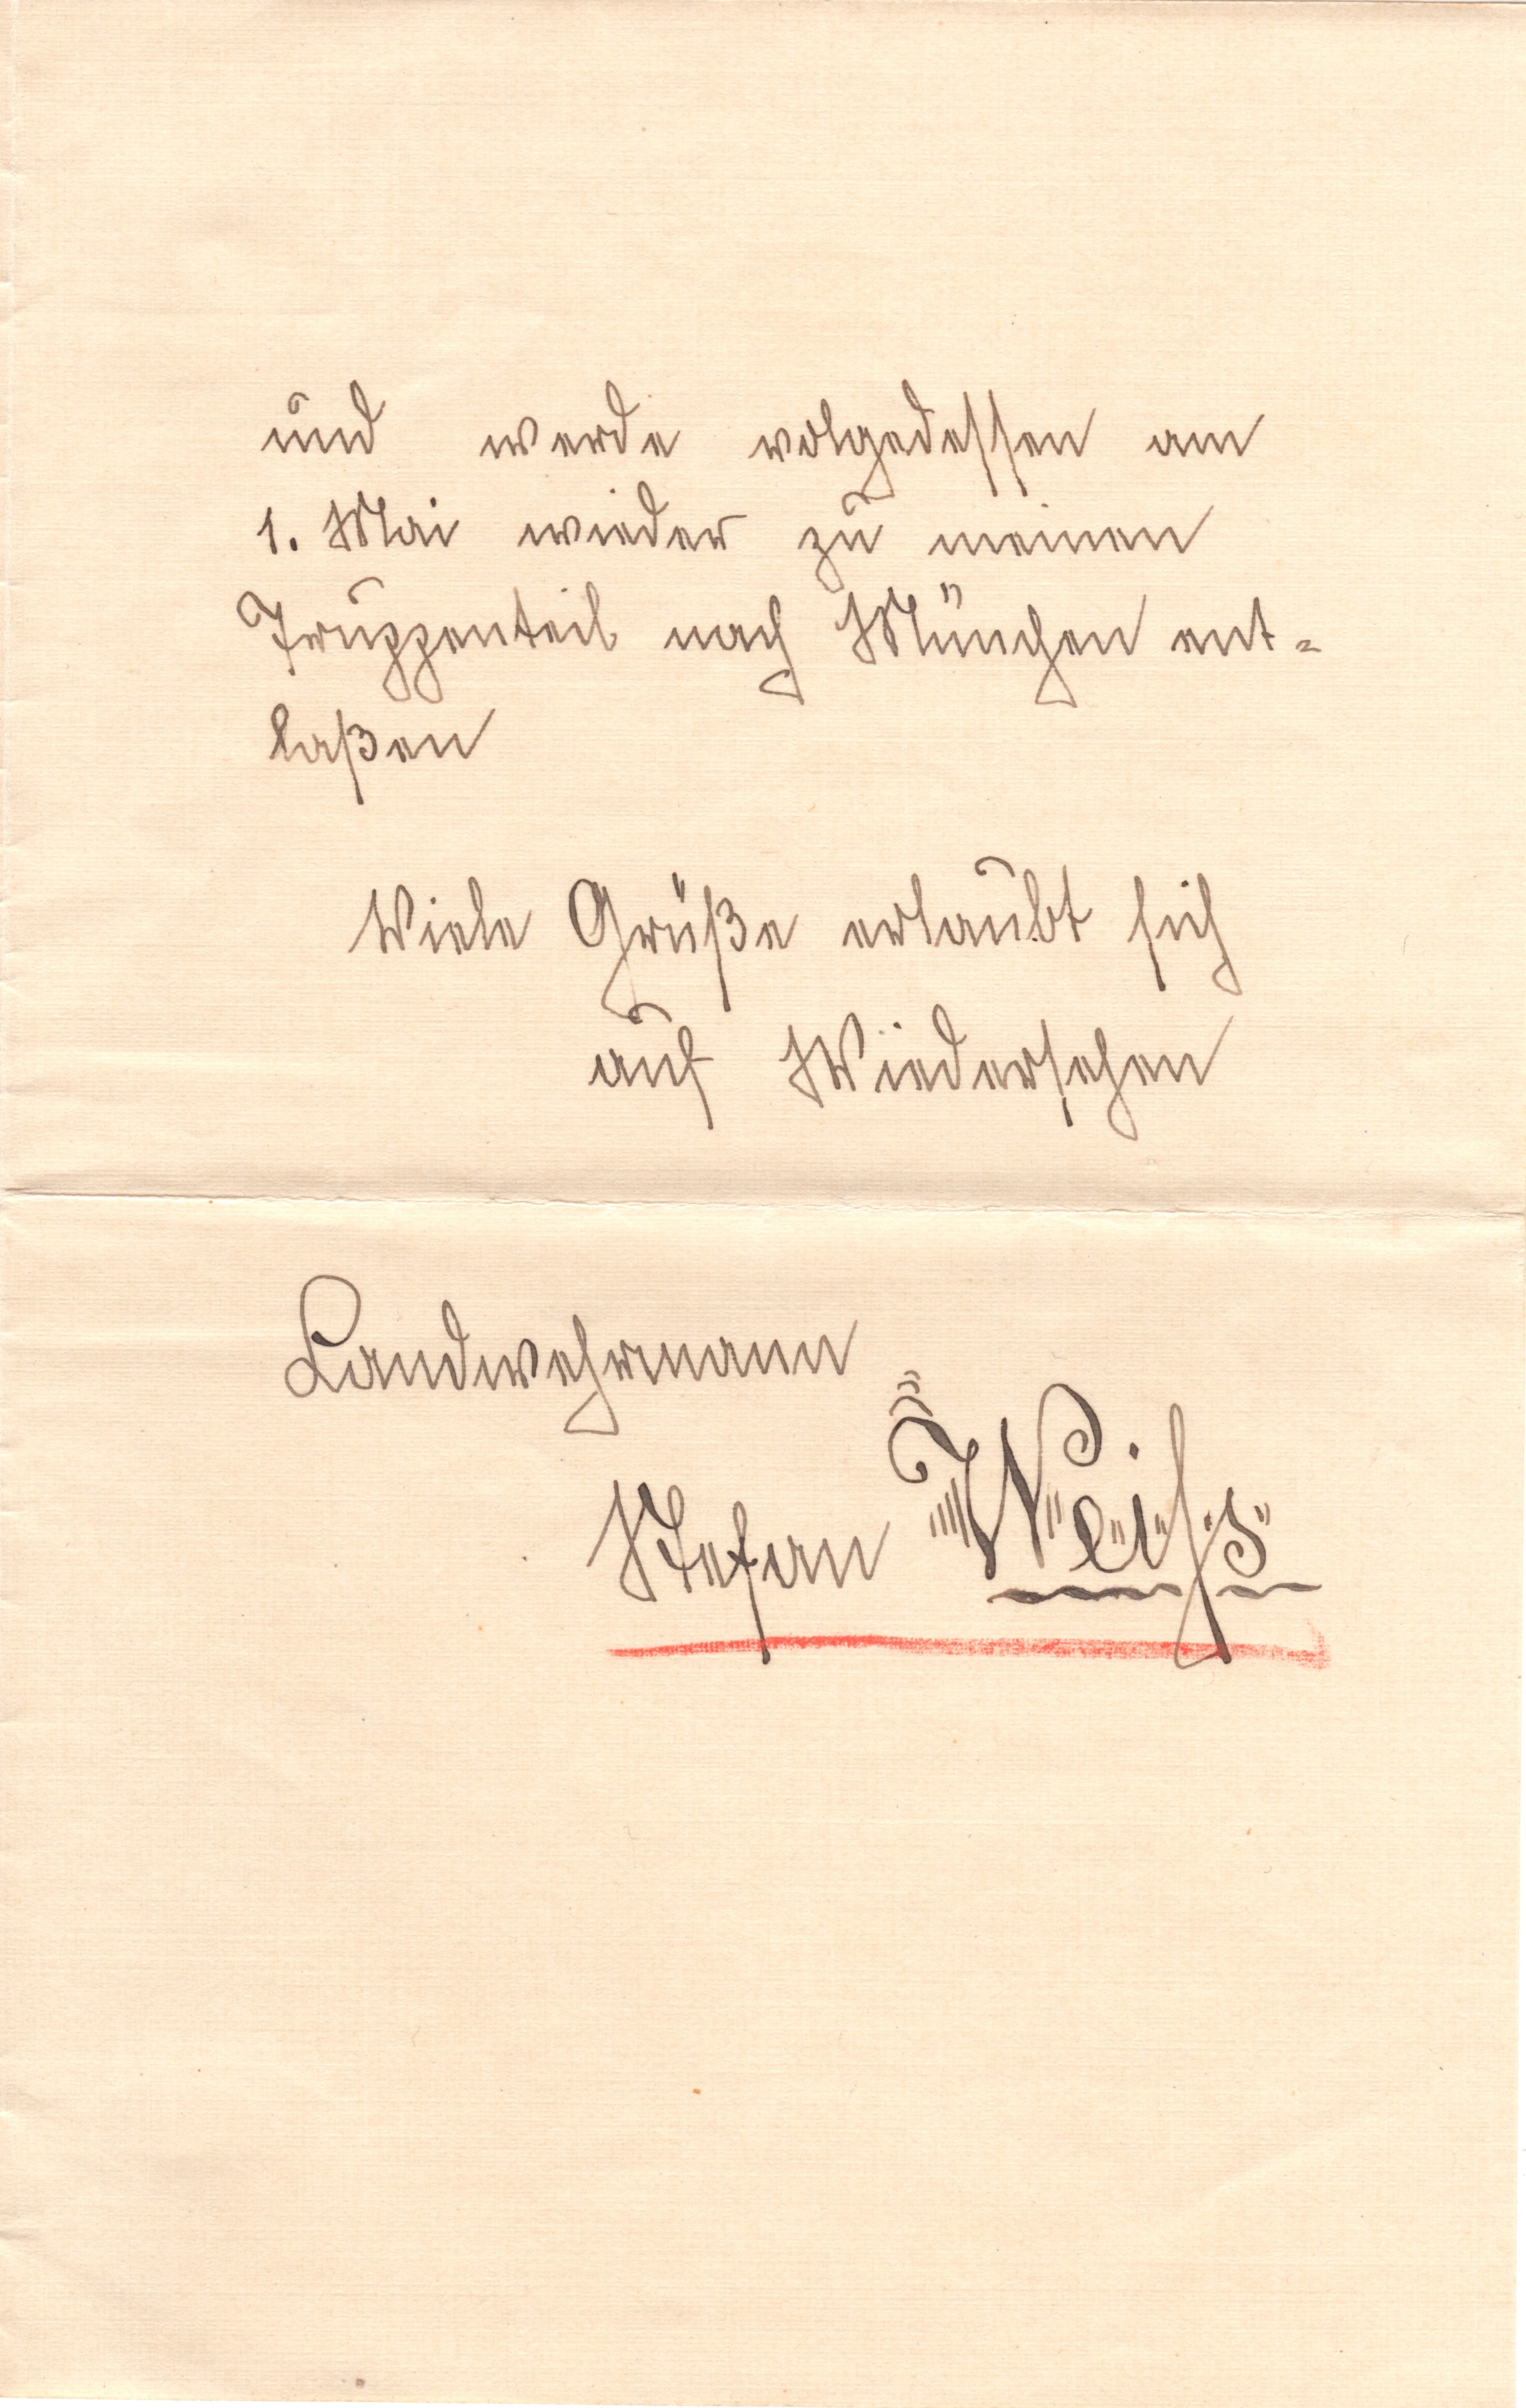 und werde volgedessen am
1. Mai wieder zu meinen
Truppenteil nach München ent=
laßen
Viele Grüße erlaubt sich
auf Wiedersehen
Landwehrmann
Stefan Weiß